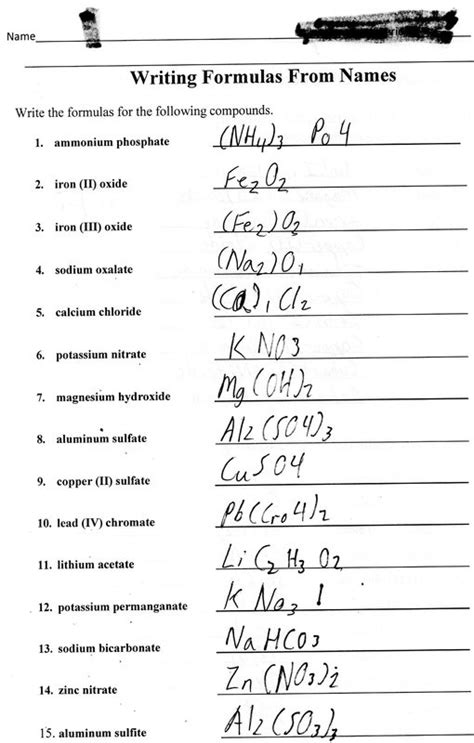 Name
Writing Formulas From Names
Write the formulas for the following compounds.
1. ammonium phosphate (NH4)3 Po4
2. iron (II) oxide Fe2O2
3. iron (III) oxide (Fe2)O2
4. sodium oxalate (Na2)O1
5. calcium chloride (Ca)1 Cl2
6. potassium nitrate K NO3
7. magnesium hydroxide Mg(OH)2
8. aluminum sulfate Al2(SO4)3
9. copper (II) sulfate CuSO4
10. lead (IV) chromate Pb(Cro4)2
11. lithium acetate Li C2 H3 O2
12. potassium permanganate K No3
13. sodium bicarbonate Na HCO3
14. zinc nitrate Zn (NO3)2
15. aluminum sulfite Al2(SO3)3